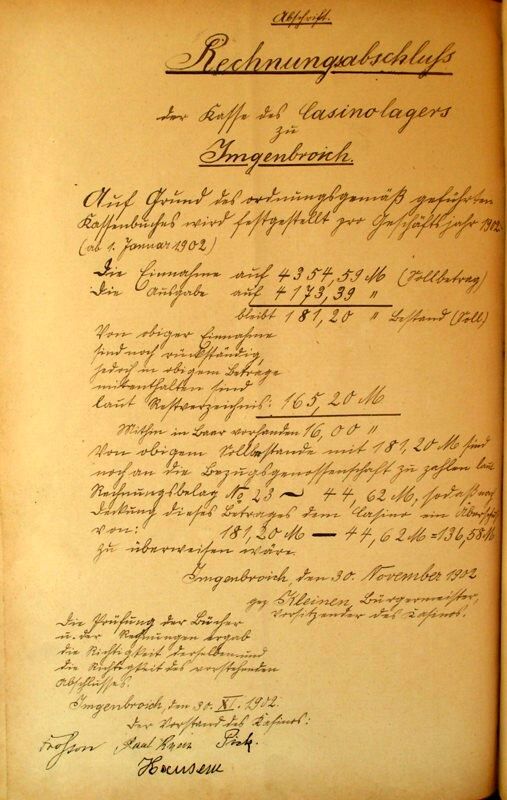 Abschrift.
Rechnungsabschluß
der Kasse des Casinolagers
zu
Imgenbroich.
Auf Grund des ordnungsgemäß geführten
Kassenbuches wird festgestellt pro Geschäftsjahr 1902
(ab 1. Januar 1902)
Die Einnahme auf 4354,59 M (Sollbetrag)
Die Ausgabe auf 4173,39 "
bleibt 181,20 " Bestand (Soll)
Von obiger Einnahme
sind noch rückständig,
jedoch in obigem Betrage
mitenthalten sind
laut Restverzeichnis: 165,20 M
Mithin in Baar vorhanden 16,00 "
Von obigem Sollbestande mit 181,20 M sind
noch an die Bezugsgenossenschaft zu zahlen laut
Rechnungsbelag No 23 — 44,62 M, sodaß nach
Deckung dieses Betrages dem Casino ein Überschuß
von: 181,20 M — 44,62 M = 136,58 M
zu überweisen wäre.
Imgenbroich, den 30. November 1902
gez. Kleinen, Bürgermeister,
Vorsitzender des Kasinos.
Die Prüfung der Bücher
u. der Rechnungen ergab
die Richtigkeit derselben und
die Richtigkeit des vorstehenden
Abschlusses.
Imgenbroich, den 30. XI. 1902.
Der Vorstand des Kasinos: